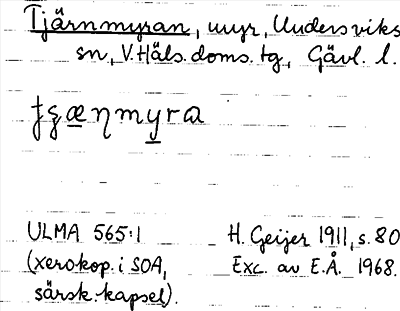 Tjärnmyran, myr, Undersviks
sn, V. Häls. doms. tg, Gävl. l.
ʈʂæɳmyra
ULMA 565:1
H. Geijer 1911, s. 80
(xerokop. i SOA,
Exc. av E.Å. 1968.
särsk. kapsel).